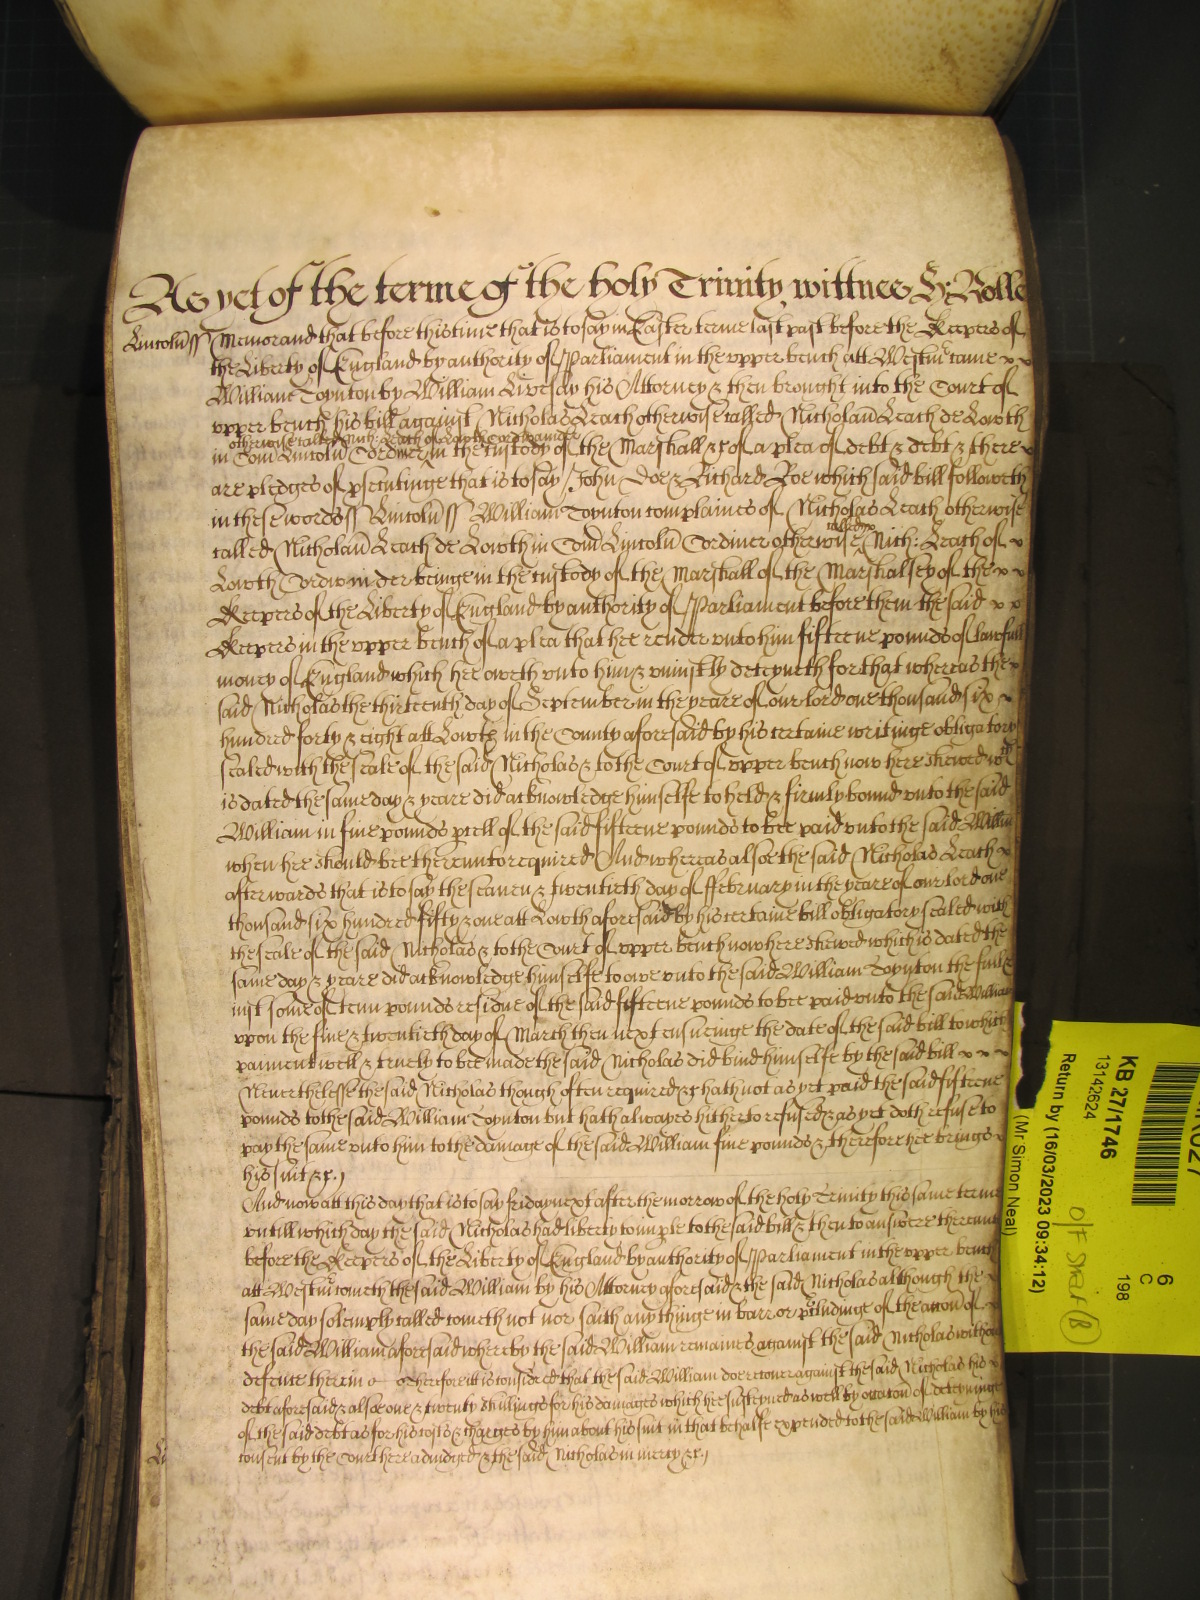 As yet of the terme of the holy Trinity wittnes H: Rolle
Lincoln ss Memorand that before this time that is to say in Easter terme last past before the Keepers of
the Liberty of England by authority of Parliament in the vpper bench att Westm came
William Toynton by William Livesay his Attorney & then brought into the Court of
vpper bench his bill against Nicholas Leach otherwise called Nicholau Leach de Lowth
otherwise called Nich: Leach of Lowth Cordwainder
in Com Lincoln Cordiner in the custody of the Marshall &c of a plea of debt & debt & there
are pledges of psecutinge that is to say John Doe & Richard Roe which said bill followeth
in these words ss Lincoln ss William Toynton complaines of Nicholas Leach otherwise
called
called Nicholau Leach de Lowth in Com Lincoln Cordiner otherwise Nich: Leach of
Lowth Cordwinder beinge in the custody of the Marshall of the Marshalsey of the
Keepers of the Liberty of England by authority of Parliament before them the said
Keepers in the vpper bench of a plea that hee render vnto him fifteene pounds of lawfull
money of England which hee oweth vnto him & vniustly deteyneth for that whereas the
said Nicholas the thirteenth day of September in the yeare of our lord one thousand six
hundred forty & eight att Lowth in the County aforesaid by his certaine writinge obligatory
sealed with the seale of the said Nicholas & to the Court of vpper bench now here shewed wch
is dated the same day & yeare did acknowledge himselfe to held & firmly bound vnto the said
William in fiue pounds pcell of the said fifteene pounds to bee paid vnto the said William
when hee should bee therevnto required And whereas alsoe the said Nicholas Leach
afterwards that is to say the seauen & twentieth day of ffebruary in the yeare of our lord one
thousand six hundred fifty & one att Lowth aforesaid by his certaine bill obligatory sealed with
the seale of the said Nicholas & to the Court of vpper bench now here shewed which is dated the
same day & yeare did acknowledge himselfe to owe vnto the said William Toynton the full &
iust some of tenn pounds residue of the said fifteene pounds to bee paid vnto the said William
vpon the fiue & twentieth day of March then next ensueinge the date of the said bill to which
paiment well & truely to bee made the said Nicholas did bind himselfe by the said bill
Neverthelesse the said Nicholas though often required &c hath not as yet paid the said fifteene
pounds to the said William Toynton but hath alwayes hitherto refused & as yet doth refuse to
pay the same vnto him to the damage of the said William fiue pounds & therefore hee brings
his suit &c.
And now att this day that is to say friday next after the morrow of the holy Trinity this same terme
vntill which day the said Nicholas had liberty to imple to the said bill & then to answere therevnto
before the Keepers of the Liberty of England by authority of Parliament in the vpper bench
att Westm cometh the said William by his Attorney aforesaid & the said Nicholas although the
same day solemply called cometh not nor saith any thinge in barr or pcludinge of the accon of
the said William aforesaid whereby the said William remaines against the said Nicholas without
defence therein &c Therefore itt is considered that the said William doe recouer against the said Nicholas his
debt aforesaid & alsoe one & twenty shillings for his damages which hee susteyned as well by occacon of deteyninge
of the said debt as for his costs & charges by him about his suit in that behalfe expended to the said William by his
consent by the Court here adiudged & the said Nicholas in mercy &c.
KB 27/1746
13142624
Return by (16/03/2023 09:34:12)
(Mr Simon Neal)
6
C
198